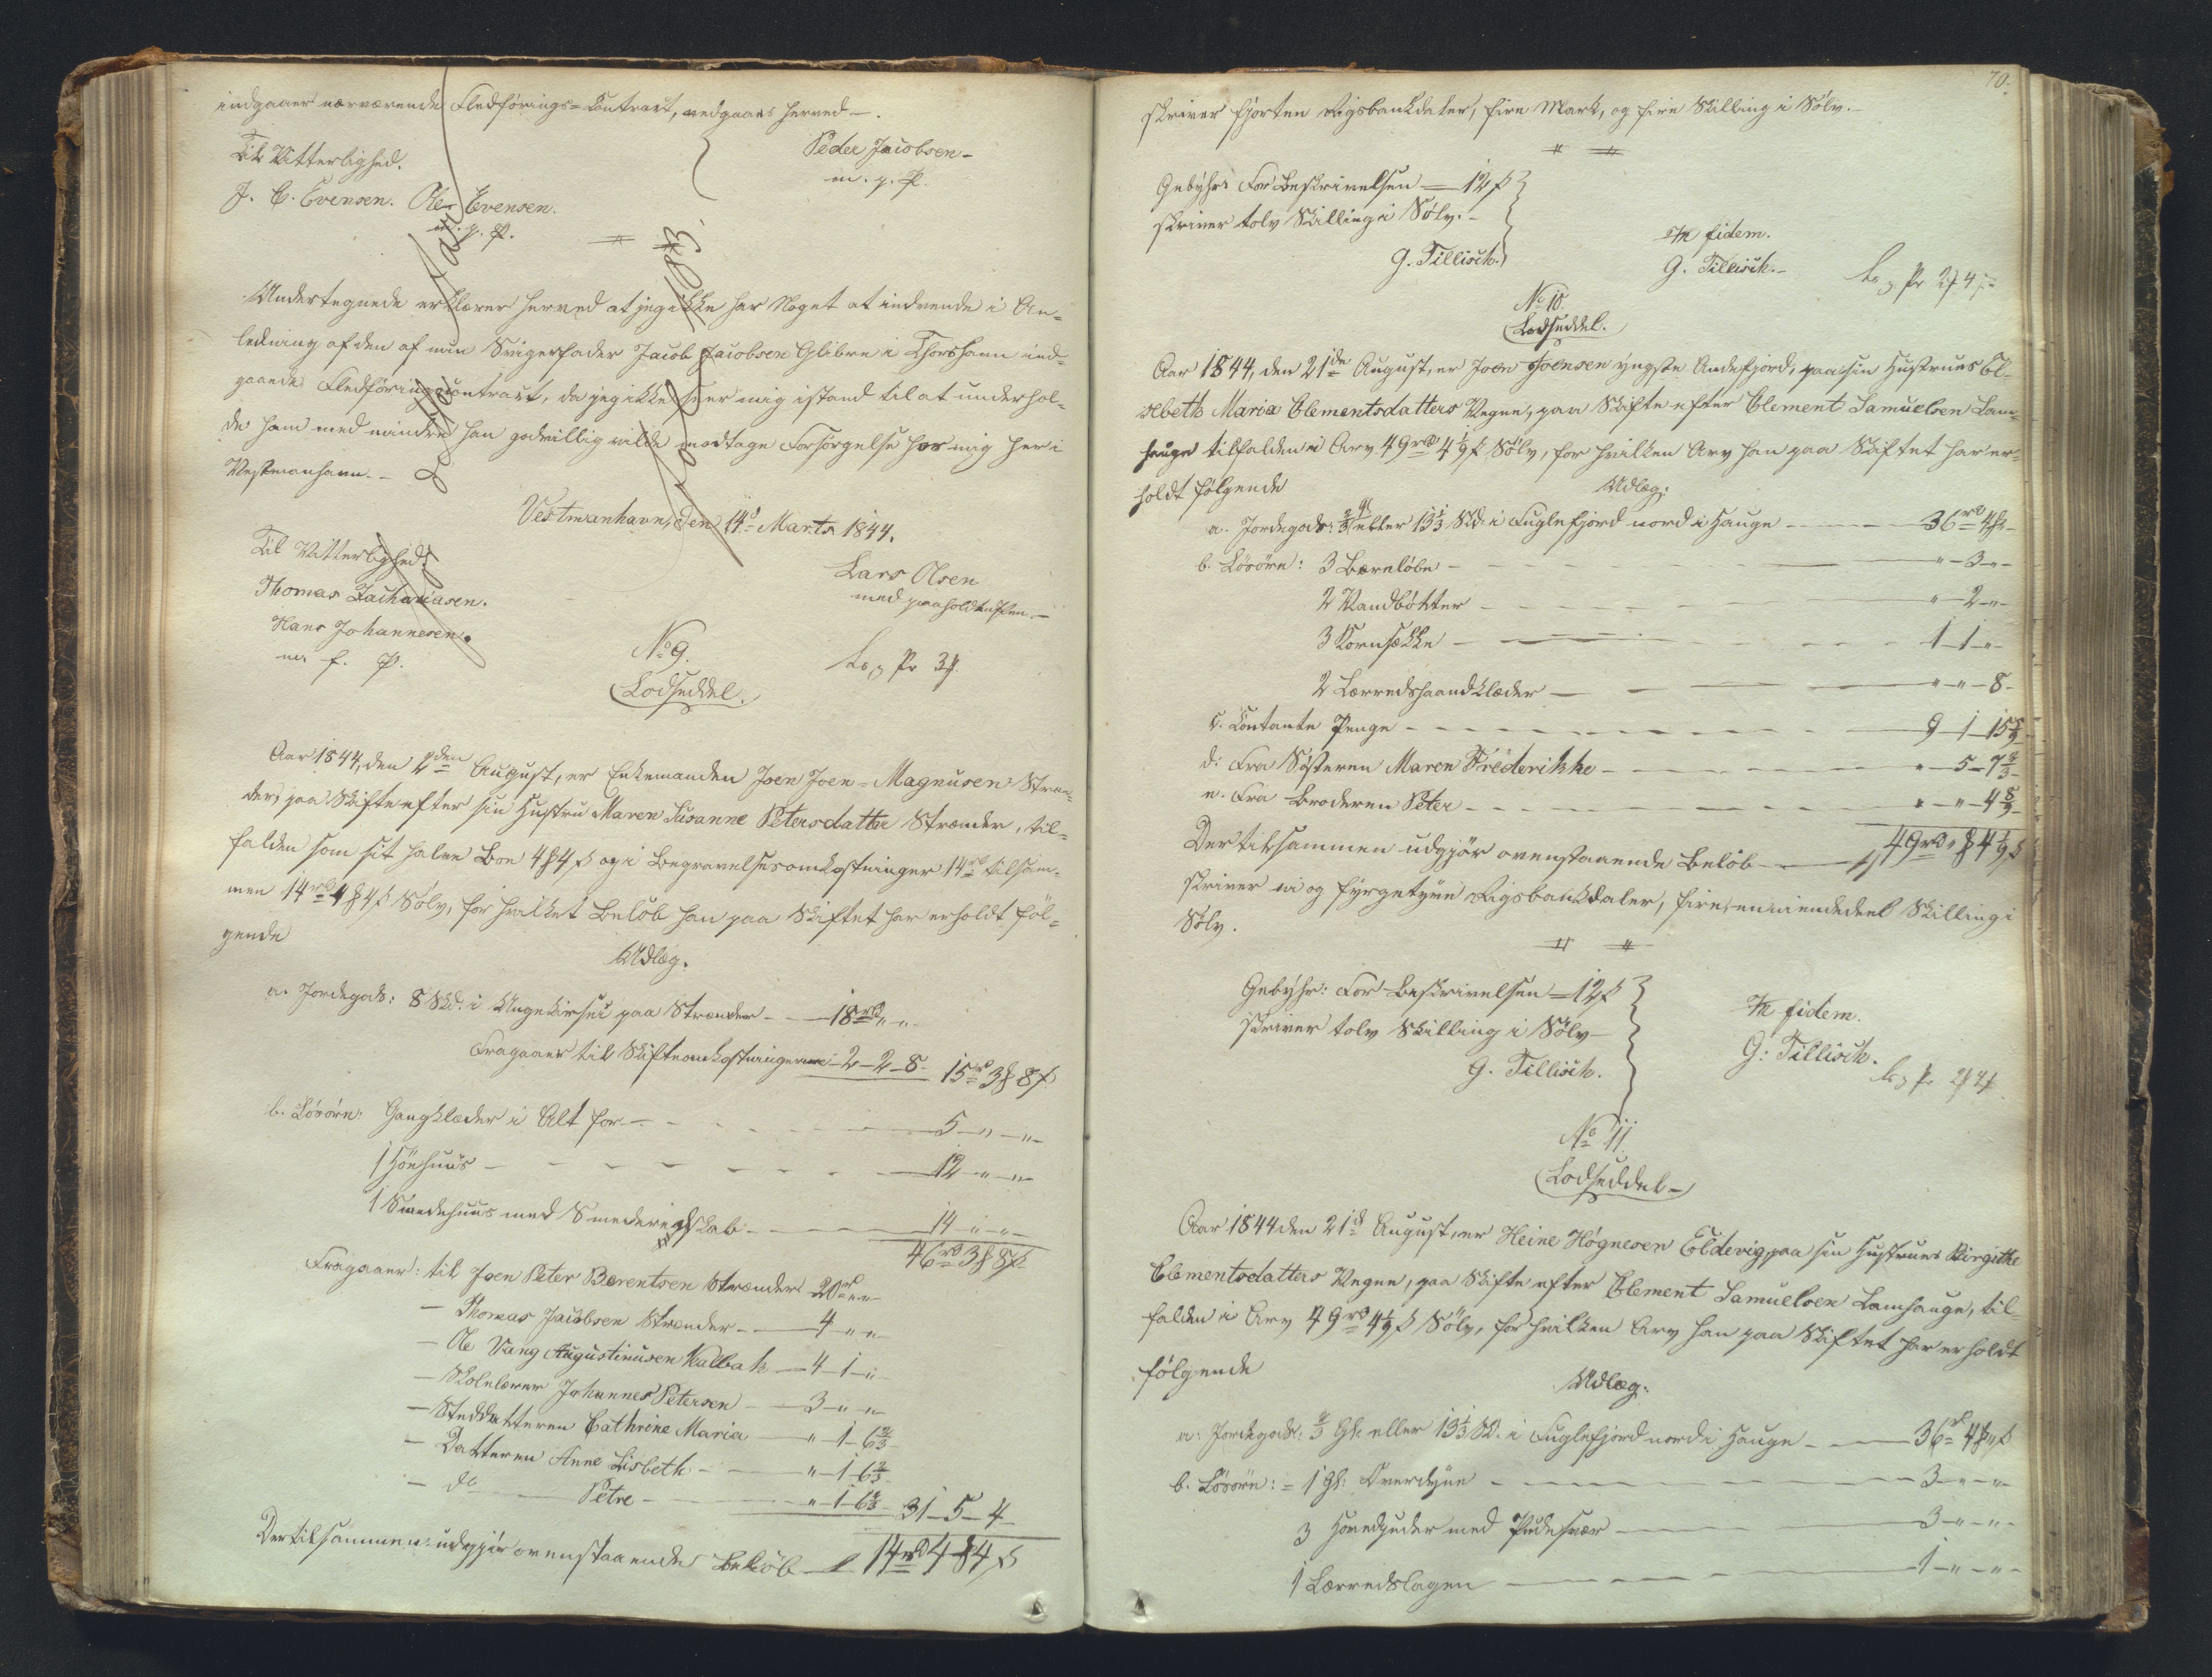 indgaaer nærværende Fledførings-Contract, vedgaaes herved –.
Til Vitterlighed.
Peder Jacobsen –
m. p. P.
J. C. Evensen. Ole Evensen.
m. p. P.
Undertegnede erklærer herved at jeg ikke har Noget at indvende i An-
ledning af den af min Svigerfader Jacob Jacobsen Glibre i Thorshavn ind-
gaaede Fledføringscontract, da jeg ikke seer mig istand til at underhol-
de ham med mindre han godvillig vilde modtage Forsørgelse hos mig her i
Vestmanhavn. –
Vestmanhavn, den 14d Marts 1844.
Til Vitterlighed:
Lars Olsen
med paaholdt Pen. –
Thomas Zachariasen.
Hans Johannesen.
m. f. P.
No 9.
Lodseddel.
Aar 1844, den 2den August, er Enkemanden Joen Joen-Magnusen Stræn-
der, paa Skifte efter sin Hustru Maren Susanne Petersdatter Strænder, til-
falden som sit halve Boe 4 ꝟ 4 ß og i Begravelsesomkostninger 14 rbd tilsam-
men 14 rbd 4 ꝟ 4 ß Sølv, for hvilket Beløb han paa Skiftet har erholdt føl-
gende
Udlæg.
a. Jordegods: 8 Skd. i paa Strænder – – 18 rbd „ „
Fragaaer til Skifteomkostningerne – 2 – 2 – 8. 15 rbd 3 ꝟ 8 ß
b. Løsøre: Gangklæder i Alt for – 5 – „ – „
1 Høehuus – 12 – „ – „
1 Smedehuus med Smederedskab – 14 – „ – „
46 rbd 3 ꝟ 8 ß
Fragaaer: til Joen Peter Berentsen Strænder 20 „ „
– Thomas Jacobsen Strænder – 4 „ „
– Ole Vang Augustinusen Kalbak – 4 – 1 – „
– Skolelærer Johannes Petersen – 3 – „ – „
– Steddatteren Cathrine Maria – „ – 1 – 6 2/3
– Datteren Anne Lisbeth – „ – 1 – 6 2/3
– do Petre – „ – 1 – 6 2/3 31 – 5 – 4
Der tilsammen udgjør ovenstaaende Beløb – 14 rbd 4 ꝟ 4 ß
70.
skriver fjorten Rigsbankdaler, fire Mark, og fire Skilling i Sølv. –
Gebyhr: For Beskrivelsen = 12 ß
skriver tolv Skilling i Sølv. –
In fidem.
G. Tillisch.
G. Tillisch. –
No 10.
Lodseddel.
Aar 1844, den 21de August, er Joen Joensen yngste Andefjord, paa sin Hustrues El-
sebeth Maria Clementsdatters Vegne, paa Skifte efter Clement Samuelsen Lam-
hauge tilfalden i Arv 49 rbd 4 1/9 ß Sølv, for hvilken Arv han paa Skiftet har er-
holdt følgende
Udlæg:
a. Jordegods: 2/3 Gl eller 13 1/3 Skd. i Fuglefjord nord i Hauge – 36 rbd 4 ꝟ –
b. Løsøre: 3 Børneløbe – „ – 3 – „ –
2 Vandbøtter – „ – 2 – „ –
3 Kornsække – 1 – 1 – „ –
2 Lærredshaandklæder – „ – „ – 8 –
c. Contante Penge – 9 – 1 – 15 5/9
d: Fra Søsteren Maren Frederikke – „ – 5 – 7 2/3
e. Fra Broderen Peter – „ – „ – 4 8/9
Der tilsammen udgjør ovenstaaende Beløb – 49 rbd „ ꝟ 4 1/9 ß
skriver ni og fyrgetyve Rigsbankdaler, fire, en niendedeel Skilling i
Sølv.
Gebyhr: For Beskrivelsen = 12 ß
skriver tolv Skilling i Sølv –
In fidem.
G. Tillisch.
G: Tillisch.
No 11.
Lodseddel –
Aar 1844 den 21de August, er Heine Høgnesen Eldevig, paa sin Hustrues Birgithe
Clementsdatters Vegne, paa Skifte efter Clement Samuelsen Lamhauge, til
falden i Arv 49 rbd 4 1/9 ß Sølv, for hvilken Arv han paa Skiftet har erholdt
følgende
Udlæg:
a: Jordegods: 2/3 Gl. eller 13 1/3 Sk. i Fuglefjord nord i Hauge – 36 rbd 4 ꝟ „ ß
b. Løsøre: = 1 gl: Overdyne – 3 – „ – „
3 Hovedpuder med Pudevær – 3 – „ – „
1 Lærredslagen – 1 – „ – „